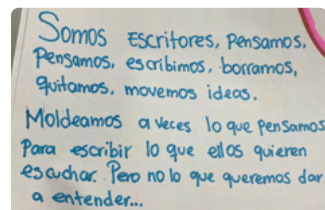 Somos Escritores, Pensamos,
Pensamos, escribimos, borramos,
quitamos, movemos ideas.
Moldeamos a veces lo que Pensamos
Para escribir lo que ellos quieren
escuchar. Pero no lo que queremos dar
a entender...